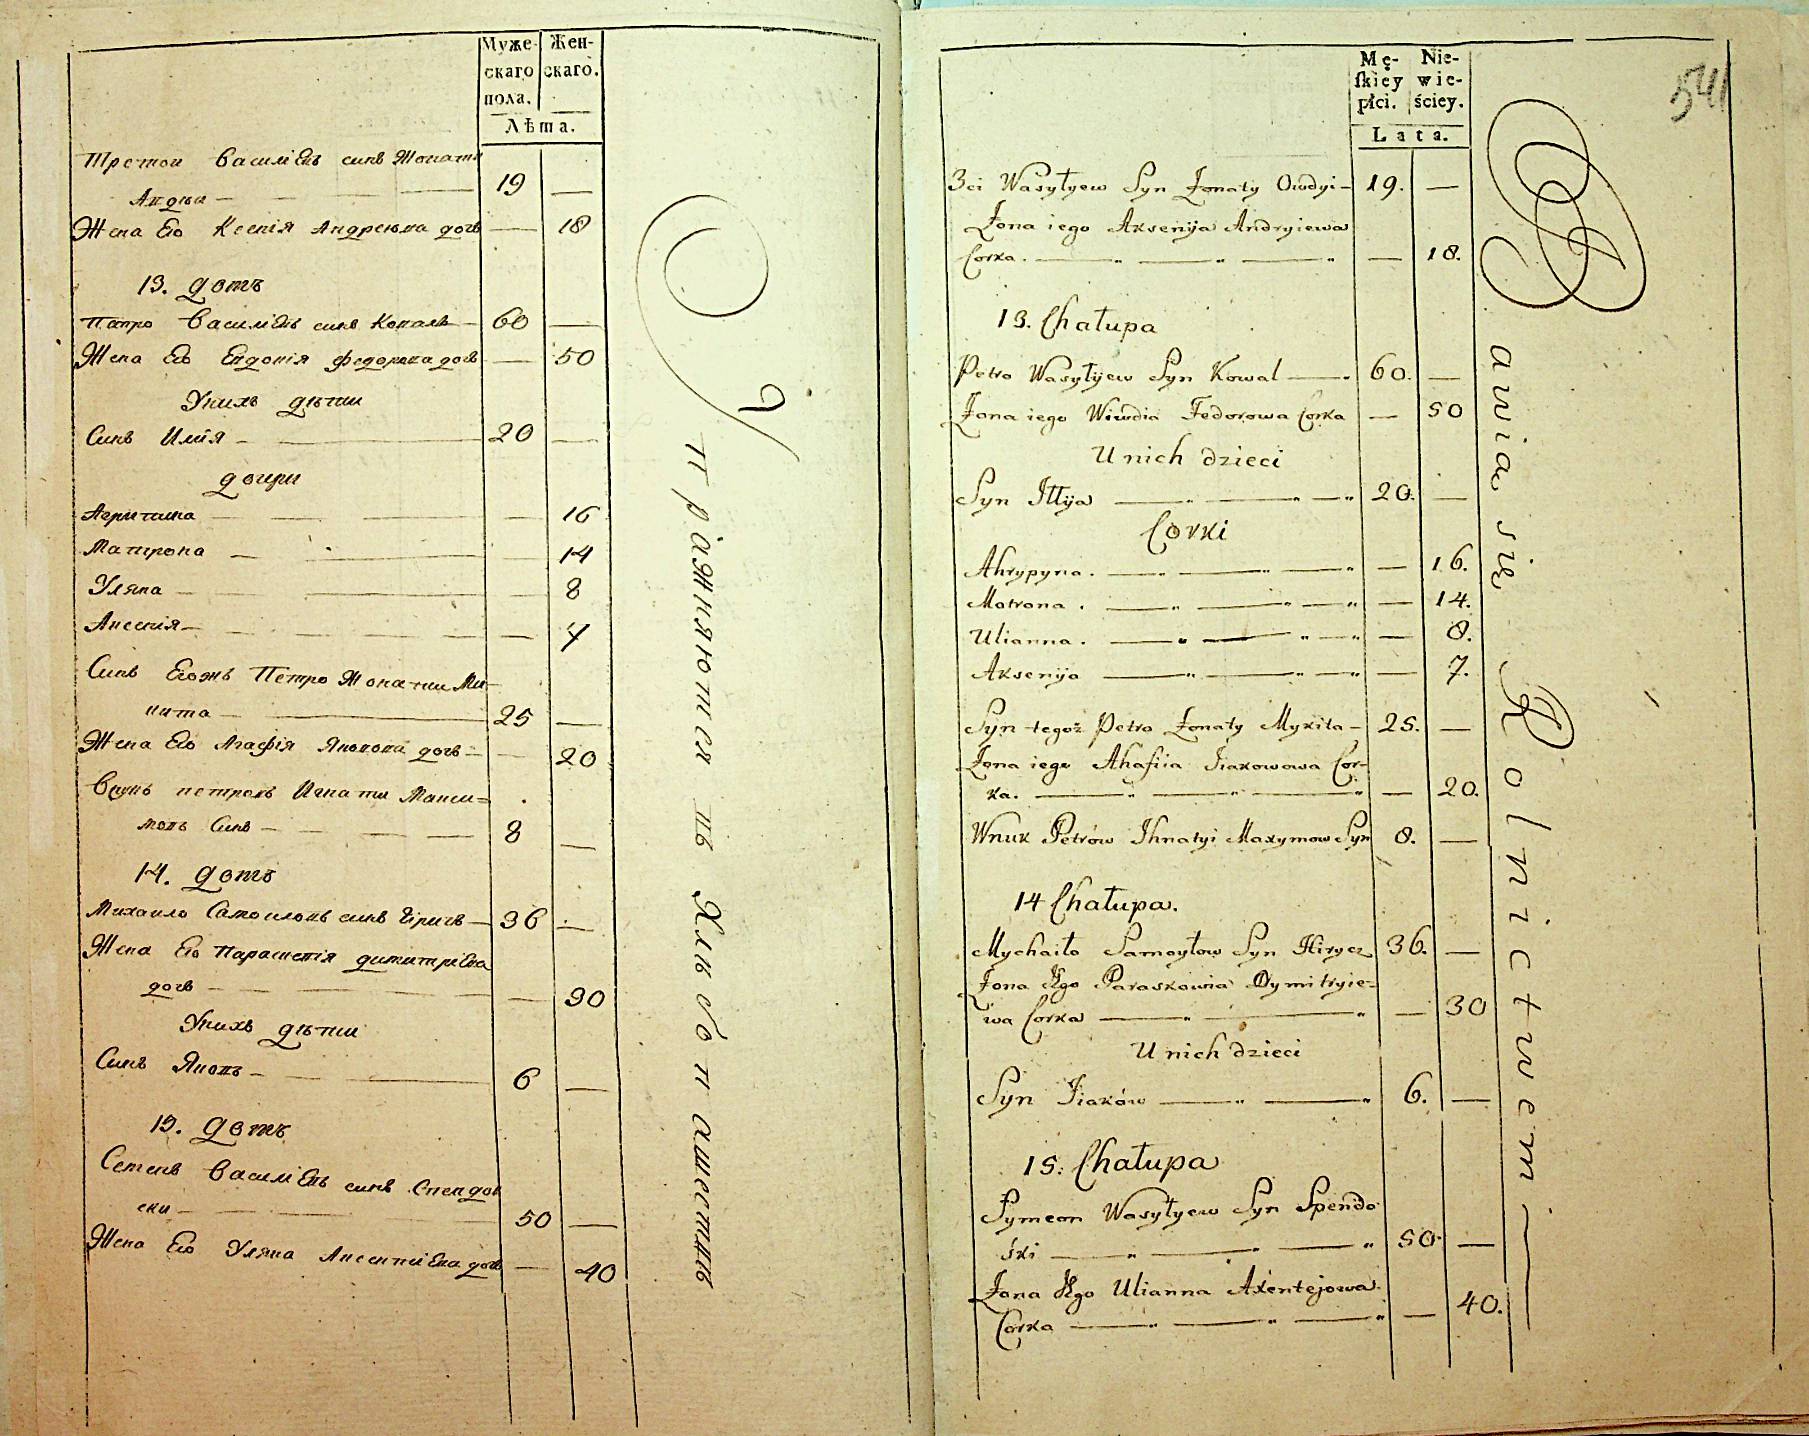 Муже- Жен-
скаго скаго.
пола.
Лѣта.
Третои Василіевъ синъ Жонати
Авдѣи — 19 —
Жена Его Ксенія Андреюва дочь — 18
13. домъ
Петро Василіевъ синъ Коваль — 60 —
Жена Его Евдокія Федорова дочь — 50
Унихъ дѣти
Синъ Илия — 20 —
дочери
Агрипина — 16
Матрона — 14
Уляна — 8
Аксенія — 7
Синъ Егожъ Петро Жонатии Ми-
кита — 25 —
Жена Его Агафія Яковова дочь — 20
Внукъ петровъ Игнати Макси-
мовъ Синъ — 8 —
14. домъ
Михаило Самоиловъ синъ Гиричъ — 36 —
Жена Его Параскевія димитріева
дочь — 30
Унихъ дѣти
Синъ Яковъ — 6 —
15. домъ
Семенъ Василіевъ синъ Спендов
ски — 50 —
Жена Его Уляна Аксентиіева дочь — 40
Упражняются въ Хлѣбопашествѣ
541
Mę- Nie-
skiey wie-
płci. ściey.
Lata.
3ci Wasylyew Syn Żonaty Owdyi — 19. —
Żona iego Aksenija Andryiewa
Corka. — 18.
13. Chałupa
Petro Wasyłyiew Syn Kowal — 60. —
Żona iego Wiwdia Fedorowa Corka — 50
U nich dzieci
Syn Illija — 20. —
Corki
Ahrypyna. — 16.
Motrona. — 14.
Ulianna. — 8.
Aksenija — 7.
Syn tegoż Petro Żonaty Mykita — 25. —
Żona iego Ahafiia Jiakowowa Cor-
ka. — 20.
Wnuk Petrów Ihnatyi Maxymow Syn 8. —
14 Chałupa.
Mychaiło Samoyłow Syn Hirycz 36. —
Żona Jego Paraskowia Dymitryie-
wa Corka — 30
U nich dzieci
Syn Jiaków — 6. —
15. Chałupa
Symeon Wasyłyew Syn Spendo-
ski — 50. —
Żona Jego Ulianna Axentejowa
Corka — 40.
Bawią się Rolnictwem